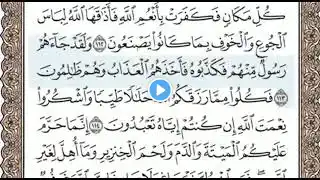 كُلِّ مَكَانٍ فَكَفَرَتْ بِأَنْعُمِ ٱللَّهِ فَأَذَٰقَهَا ٱللَّهُ لِبَاسَ
ٱلْجُوعِ وَٱلْخَوْفِ بِمَا كَانُوا۟ يَصْنَعُونَ ١١٢ وَلَقَدْ جَآءَهُمْ
رَسُولٌ مِّنْهُمْ فَكَذَّبُوهُ فَأَخَذَهُمُ ٱلْعَذَابُ وَهُمْ ظَٰلِمُونَ
١١٣ فَكُلُوا۟ مِمَّا رَزَقَكُمُ حَلَٰلًا طَيِّبًا وَٱشْكُرُوا۟
نِعْمَتَ ٱللَّهِ إِن كُنتُمْ إِيَّاهُ تَعْبُدُونَ ١١٤ إِنَّمَا حَرَّمَ
عَلَيْكُمُ ٱلْمَيْتَةَ وَٱلدَّمَ وَلَحْمَ ٱلْخِنزِيرِ وَمَآ أُهِلَّ لِغَيْرِ